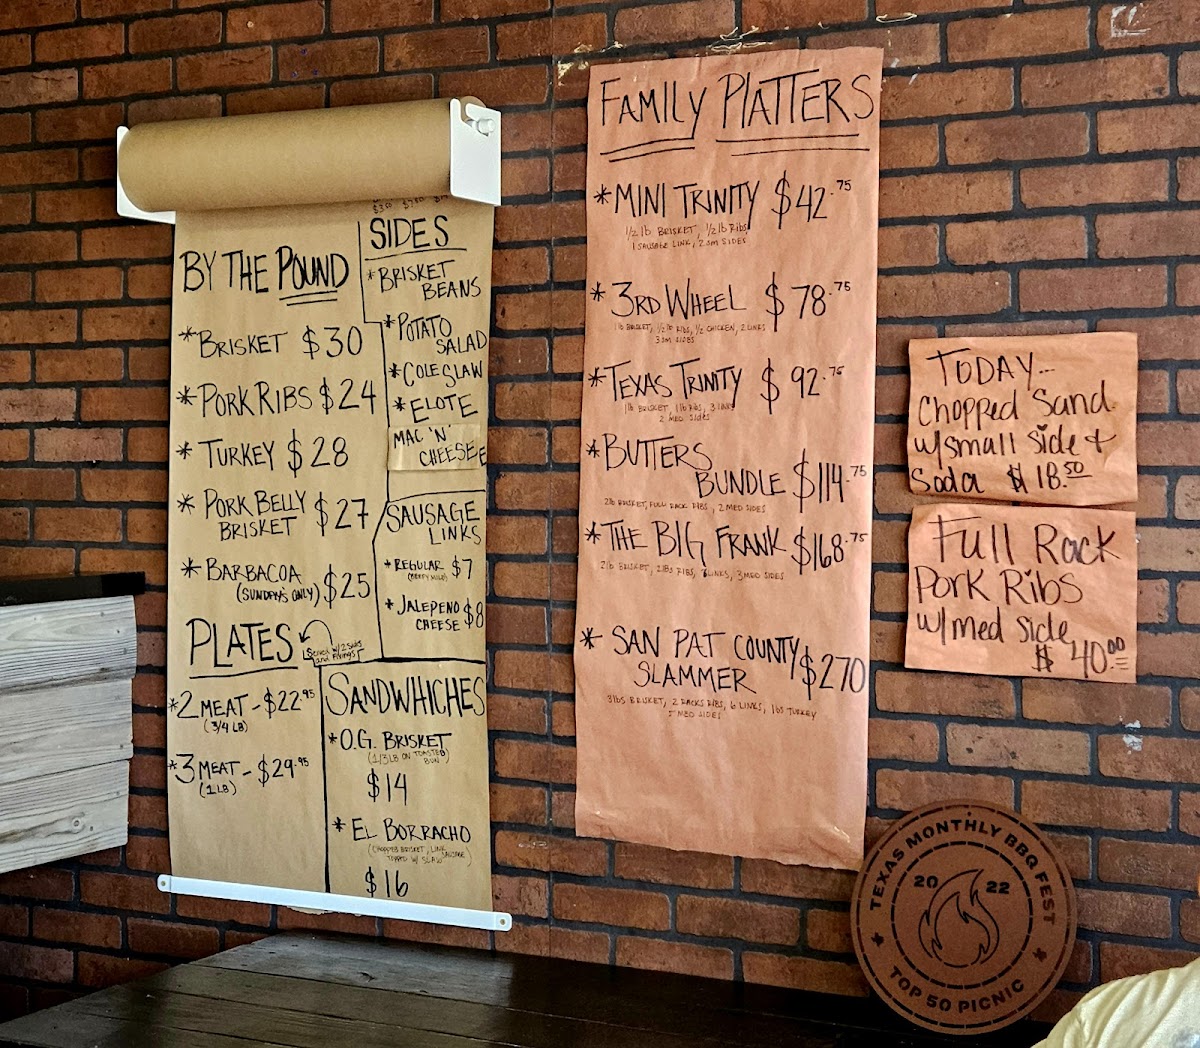 BY THE POUND
*BRISKET $30
*PORK RIBS $24
*TURKEY $28
*PORK BELLY
BRISKET $27
*BARBACOA
(SUNDAY'S ONLY) $25
SIDES
*BRISKET
BEANS
*POTATO
SALAD
*COLE SLAW
*ELOTE
MAC 'N'
CHEESE
SAUSAGE
LINKS
*REGULAR $7
*JALEPENO
CHEESE $8
PLATES
Served w/ 2 Sides
and Fixings
*2 MEAT - $22.95
(3/4 LB)
*3 MEAT - $29.95
(1 LB)
SANDWHICHES
*O.G. BRISKET
(1/3 LB ON TOASTED
BUN)
$14
*EL BORRACHO
(CHOPPED BRISKET, LINK SAUSAGE
TOPPED W/ SLAW)
$16
FAMILY PLATTERS
*MINI TRINITY $42.75
1/2 lb BRISKET, 1/2 lb RIBS
1 SAUSAGE LINK, 2 SM SIDES
*3RD WHEEL $78.75
1lb BRISKET, 1/2 lb RIBS, 1/2 CHICKEN, 2 LINKS
3 SM SIDES
*TEXAS TRINITY $92.75
1lb BRISKET, 1lb RIBS, 3 LINKS
2 MED SIDES
*BUTTERS
BUNDLE $114.75
2lb BRISKET, FULL RACK RIBS, 2 MED SIDES
*THE BIG FRANK $168.75
2lb BRISKET, 2lbs RIBS, LINKS, 3 MED SIDES
*SAN PAT COUNTY
SLAMMER $270
3lbs BRISKET, 2 RACKS RIBS, 6 LINKS, 1lbs TURKEY
5 MED SIDES
TODAY...
Chopped Sand.
w/small side +
Soda $18.50
Full Rack
Pork Ribs
w/med side
$40.00
TEXAS MONTHLY BBQ FEST
2022
TOP 50 PICNIC